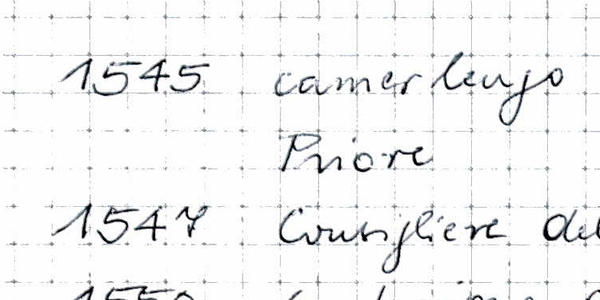 1545 camerlengo
Priore
1547 Consigliere del
1550